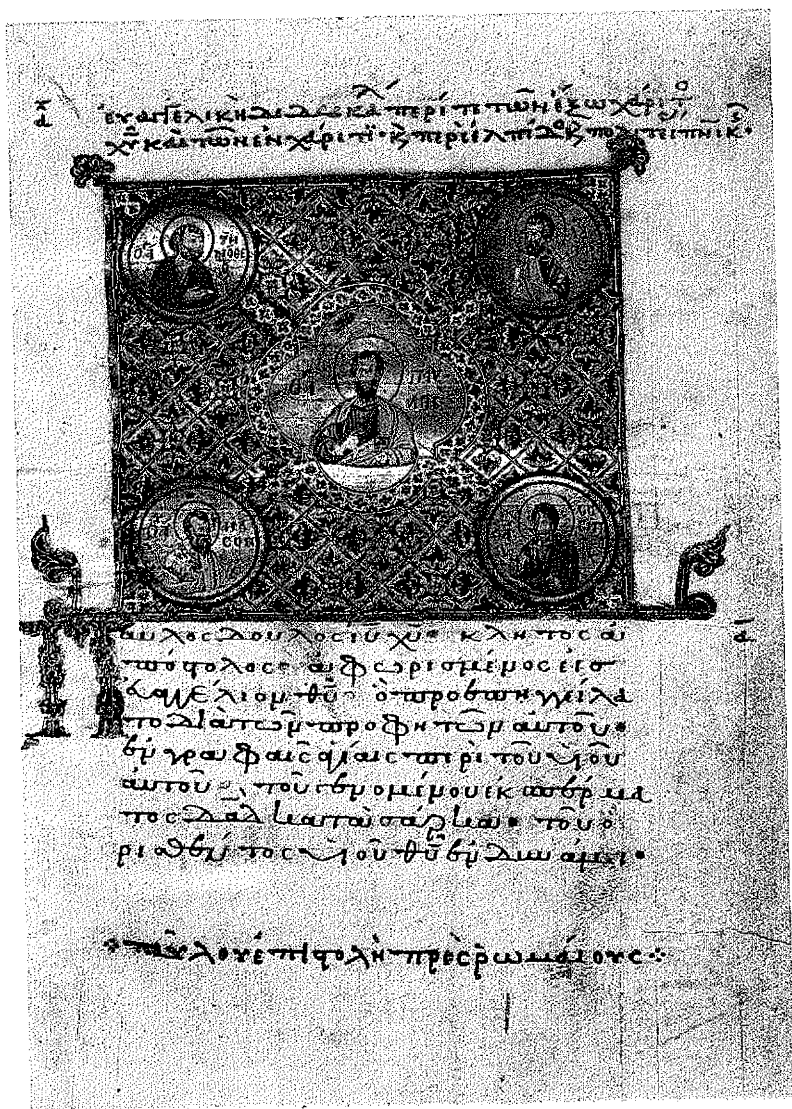 ᾱ εὐαγγελικὴ διδασκαλί περί τε τῶν ἔξω χάριτο
χῦ κ τῶν ἐν χάριτι· κ περὶ ἐλπίδος κ πολιτεί πνικ·
ὁ ἅ τιμόθε
ὁ ἅ παυλος
ἰάσων
αυλος δουλος ιυ χυ· κλητος ἀ ᾱ
πόστολος· ἀφωρισμένος εἰς
εὐαγγέλιον θῦ· ὃ προεπηγγείλα
το διὰ τῶν προφητῶν αὐτοῦ·
ἐν γραφαῖς ἁγίαις περὶ τοῦ υἱοῦ
αὐτοῦ· τοῦ γενομένου ἐκ σπέρμα
τος δᾱδ κατὰ σάρκα· τοῦ ὁ
ρισθέντος υἱοῦ θῦ ἐν δυνάμει·
παύλου ἐπιστολὴ πρὸς ῥωμαίους